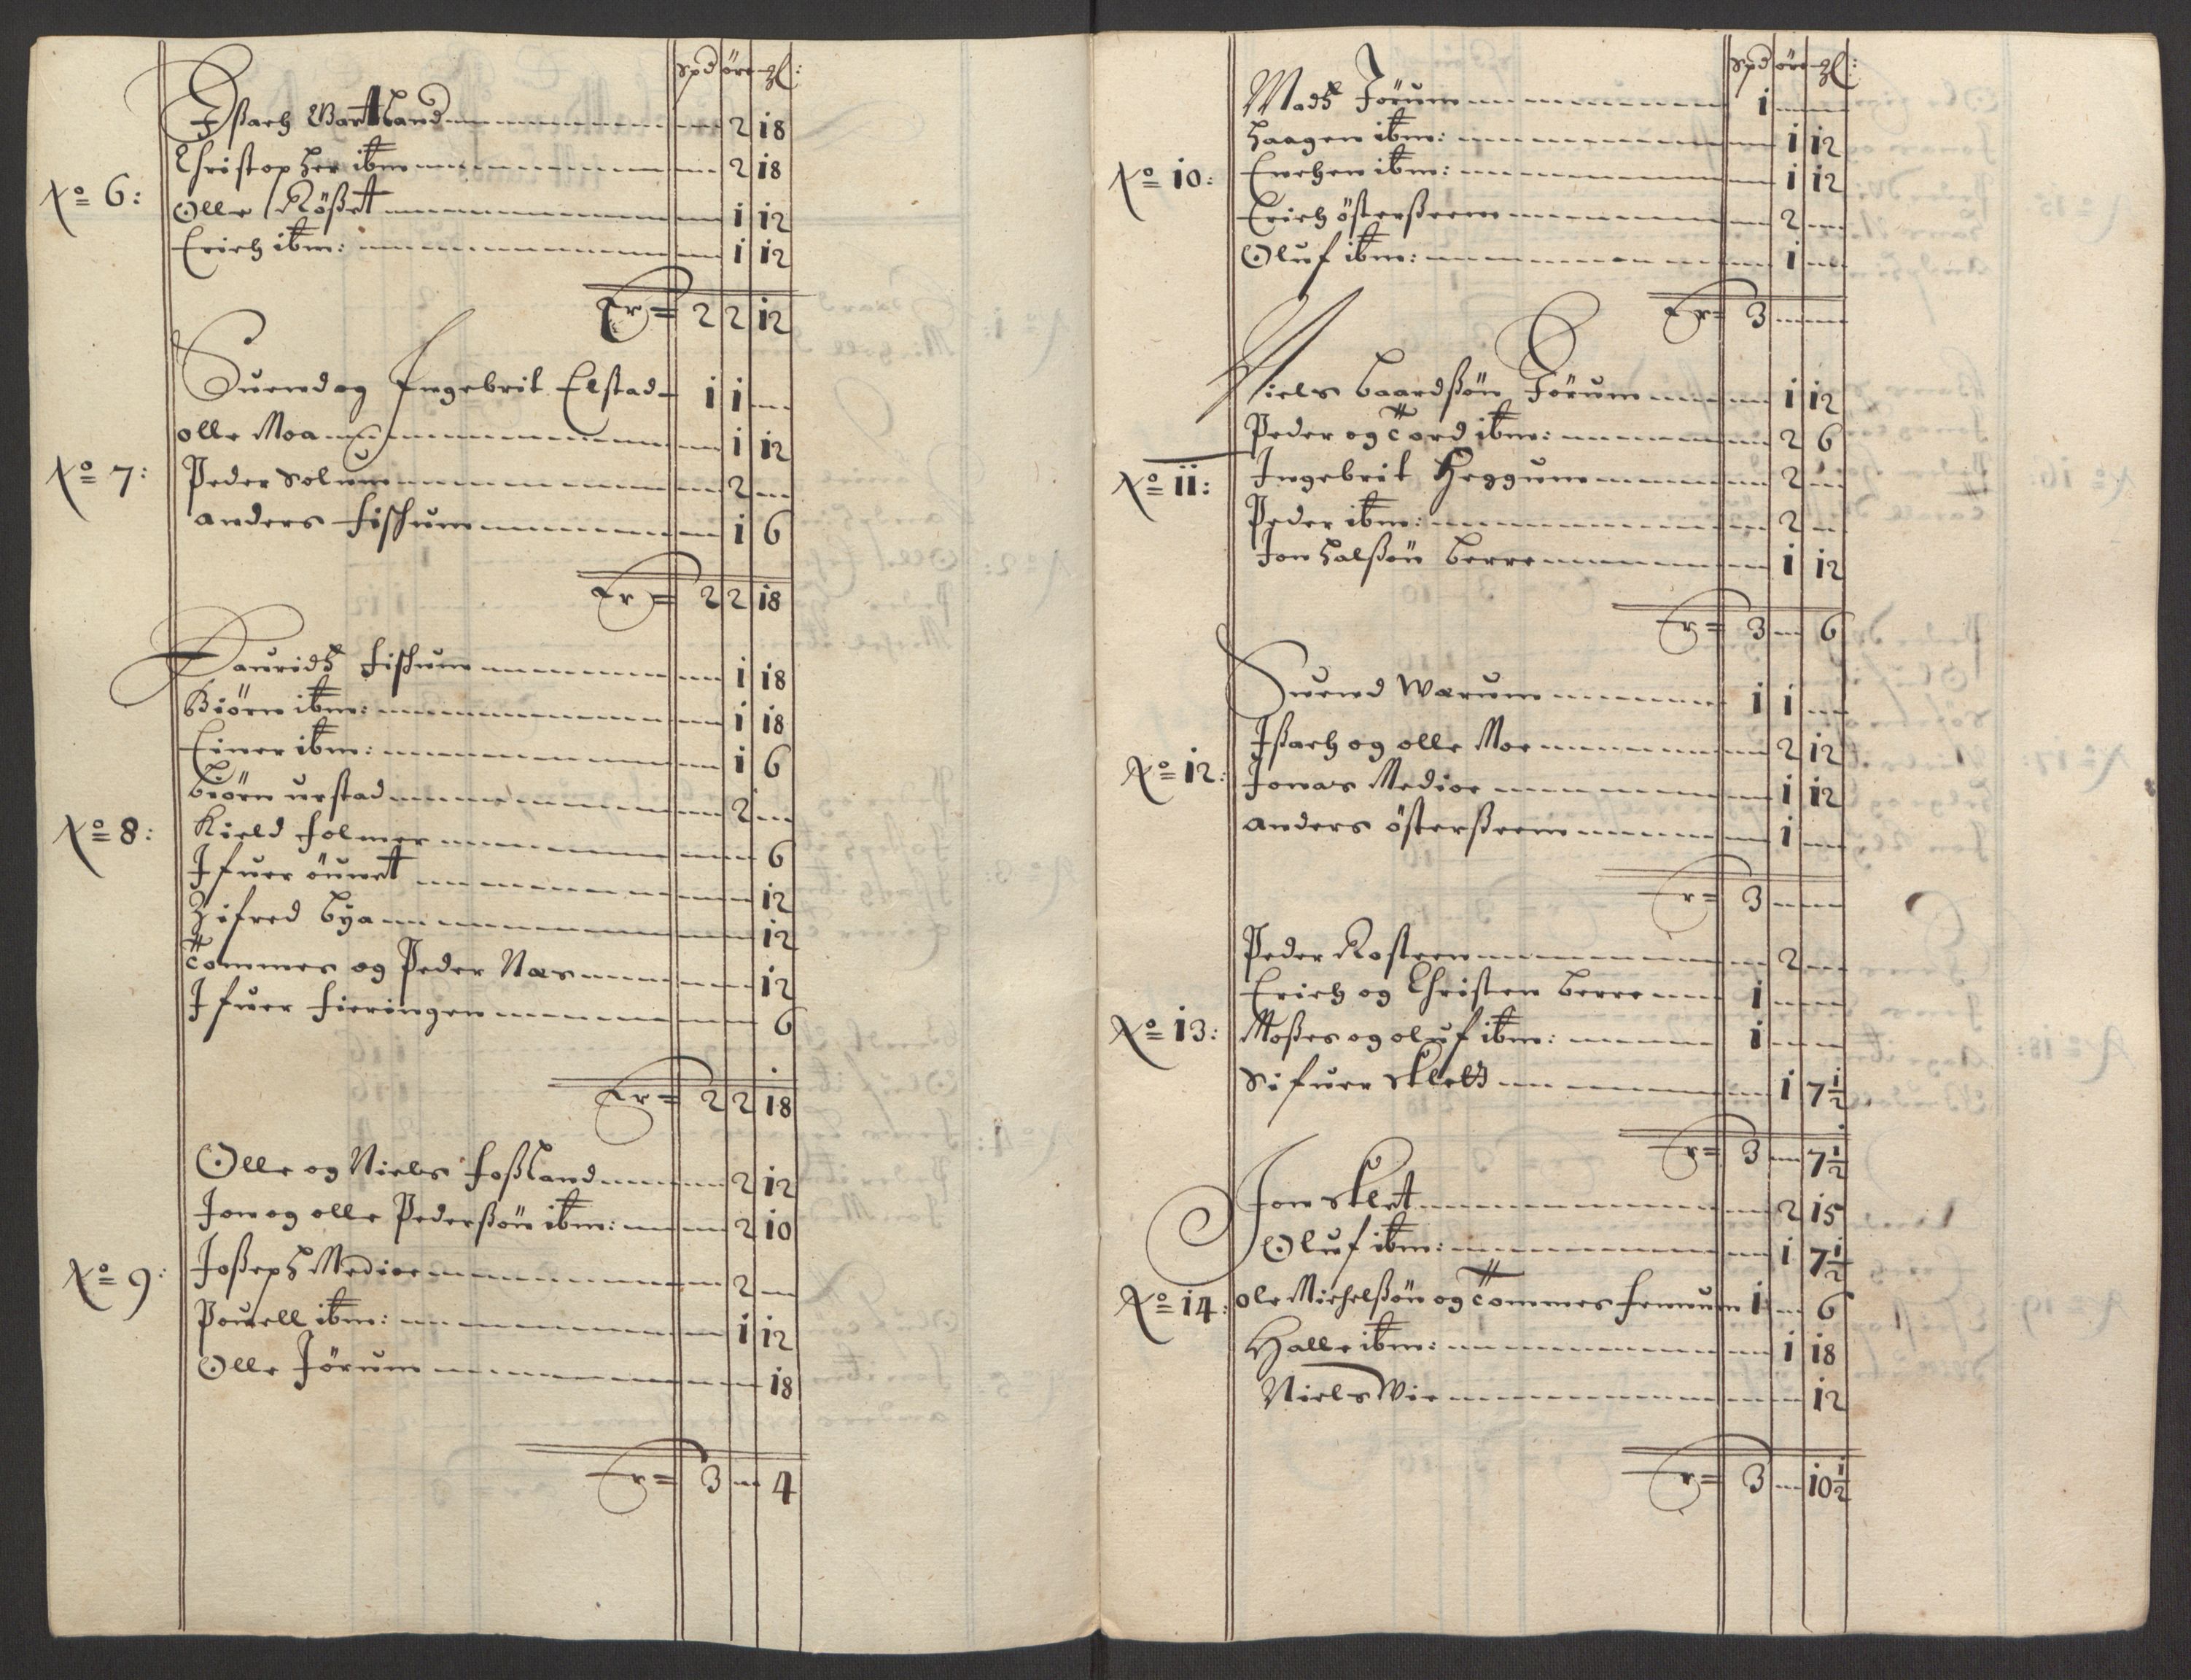 Spd öre ₰:
Jßach Bartland - 2 18
Christopher ibm - 2 18
No 6:
Olle Rößet - 1 12
Erich ibm: - 1 12
Er = 2 2 12
Suend og Ingebrit Elstad 1 1 -
olle Moa - 1 12
No 7:
Peder Solum - 2 -
anders Fischum - 1 6
Er = 2 2 18
Lauridtz Fischum - 1 18
Biörn ibm: - 1 18
Einer ibm: - 1 6
biörn urstad - 2 -
No 8:
Kield Folmer - 6
Ifuer öuuet - 12
Zifred bya - 12
Tommes og Peder Næs - 12
Ifuer Fieringen - 6
Er = 2 2 18
Olle og Niels Foßland - 2 12
Jon og olle Pederßön ibm: - 2 10
No 9:
Joßeph Medioe - 2 -
Pouell ibm: - 1 12
Olle Jörum - 18
Er = 3 - 4
Spd öre ₰:
Madtz Jörum - 1 - -
haagen ibm: - 1 12
No 10:
Enchen ibm: - 1 12
Erich österßeem - 2 -
Oluf ibm: - 1 -
Er = 3 - -
Niels baardßön Jörum - 1 12
Peder og Tord ibm: - 2 6
No 11:
Ingebrit Heggum - 2 -
Peder ibm: - 2 -
Jon halßön berre - 1 12
Er = 3 - 6
Suend Warum 1 1 -
Jßach og olle Moe - 2 12
No 12:
Jonas Medioe - 1 12
anders österßeem - 1 -
Er = 3 - -
Peder Rosteen - 2 -
Erich og Christen berre 1 - -
No 13:
Moßes og oluf ibm: 1 - -
Sifuer Sklett - 1 7½
Er = 3 - 7½
Jon Sklet - 2 15
Oluf ibm: - 1 7½
No 14:
Ole Michelßön og Tommes Femum 1 - 6
Halle ibm: - 1 18
Niels Wie - 12
Er = 3 - 10½